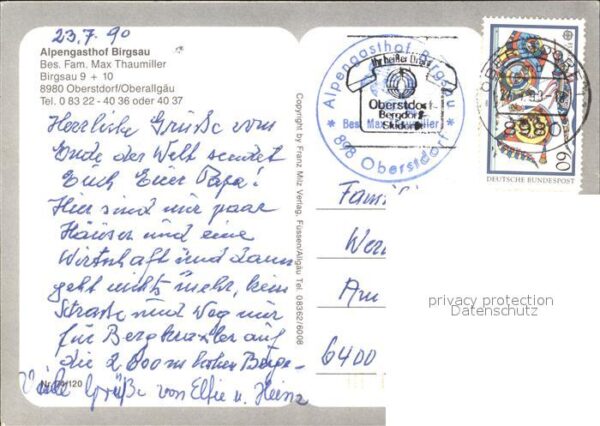 23.7.90
Alpengasthof Birgsau
Bes. Fam. Max Thaumiller
Birgsau 9 + 10
8980 Oberstdorf/Oberallgäu
Tel. 0 83 22 - 40 36 oder 40 37
Herrliche Grüße vom
Ende der Welt sendet
Euch Euer Papa!
Hier sind nur paar
Häuser und eine
Wirtschaft und dann
geht nichts mehr, kein
Straße und Weg nur
für Bergkraxler auf
die 2000m hohen Berge
Viele Grüße von Elfie u. Heinz
Copyright by Franz Milz Verlag, Füssen/Allgäu Tel. 08362/6008
Alpengasthof Birgsau
Bes. Max Thaumiller
898 Oberstdorf
Oberstdorf
Bergdorf
Skidorf
OBERSTDORF
8980
60
DEUTSCHE BUNDESPOST
Fam
Wer
Am
6400
privacy protection
Datenschutz